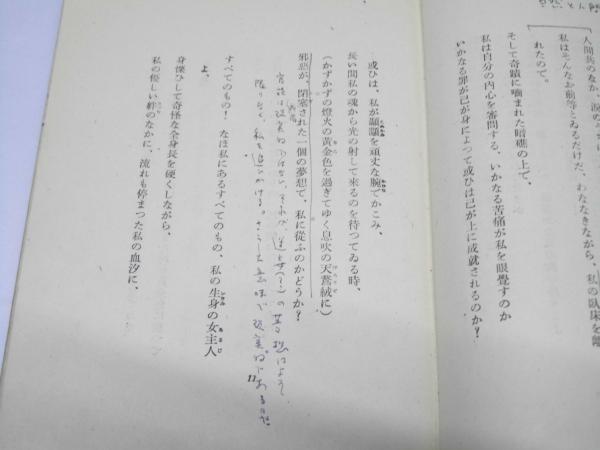 人間共のなか、
私はそんなお前等とゐるだけだ、わななきながら、私の臥床を離
れたので。
そして奇蹟に嚙まれた暗礁の上で、
私は自分の内心を審問する、いかなる苦痛が私を眼覺すのか
いかなる罪が已が身によつて或ひは已が上に成就されるのか?
或ひは、私が顳顬を頑丈な腕でかこみ、
長い間私の魂から光の射して來るのを待つてゐる時、
(かずかずの燈火の黃金色を過ぎてゆく息吹の天鵞絨に)
邪惡が、閉塞された一個の夢想で、私に從ふのかどうか?
限りなく、私を追いかける。そうした意味で現実的であるのだ
すべてのもの! なほ私にあるすべてのもの、私の生身の女主人
よ、
身慄ひして奇怪な全身長を硬くしながら、
私の優しい絆のなかに、流れも停まつた私の血汐に、
11